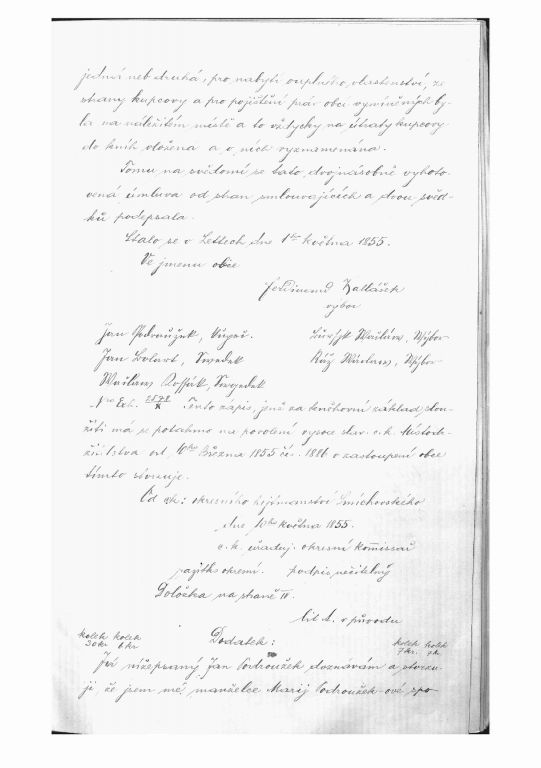 jedna neb druhá, pro nabytí ouplného vlastenství, ze
strany kupcovy a pro pojištění práv obci vyměřených by-
la na náležitém místě a to vždycky na útraty kupcovy
do knih vložena a v nich vyznamenána.
Tomu na svědomí se tato dvojnásobně vyhoto-
vená úmluva od stran smlouvajících a dvou svěd-
ků podepsala.
Stalo se v Lettech dne 1ho května 1855.
Ve jmenu obce
Ferdinand
výbor
Jan Podroužek, Wáclaw, Wýbor
Jan Swedek Wáclaw, Wýbor
Wáclaw Swedek
Tento zápis, jenž za knihovní základ slou-
žiti má se potahmo na povolení vysoce slav. c.k. Místodr-
žitelstva od 10ho Března 1855 čís. 1886 v zastoupení obce
tímto stvrzuje.
Od c.k: okresního hejtmanství Smíchovského
dne 10ho května 1855.
c. k. okresní komissař
podpis nečitelný
Doložka na straně IV.
Lit A. v původu
kolek kolek Dodatek: kolek kolek
30kr 6kr 7kr. 7k
Já nížepsaný Jan Podroužek doznávám a stvrzu-
ji že jsem mé manželce Marij Podroužek-ové spo-